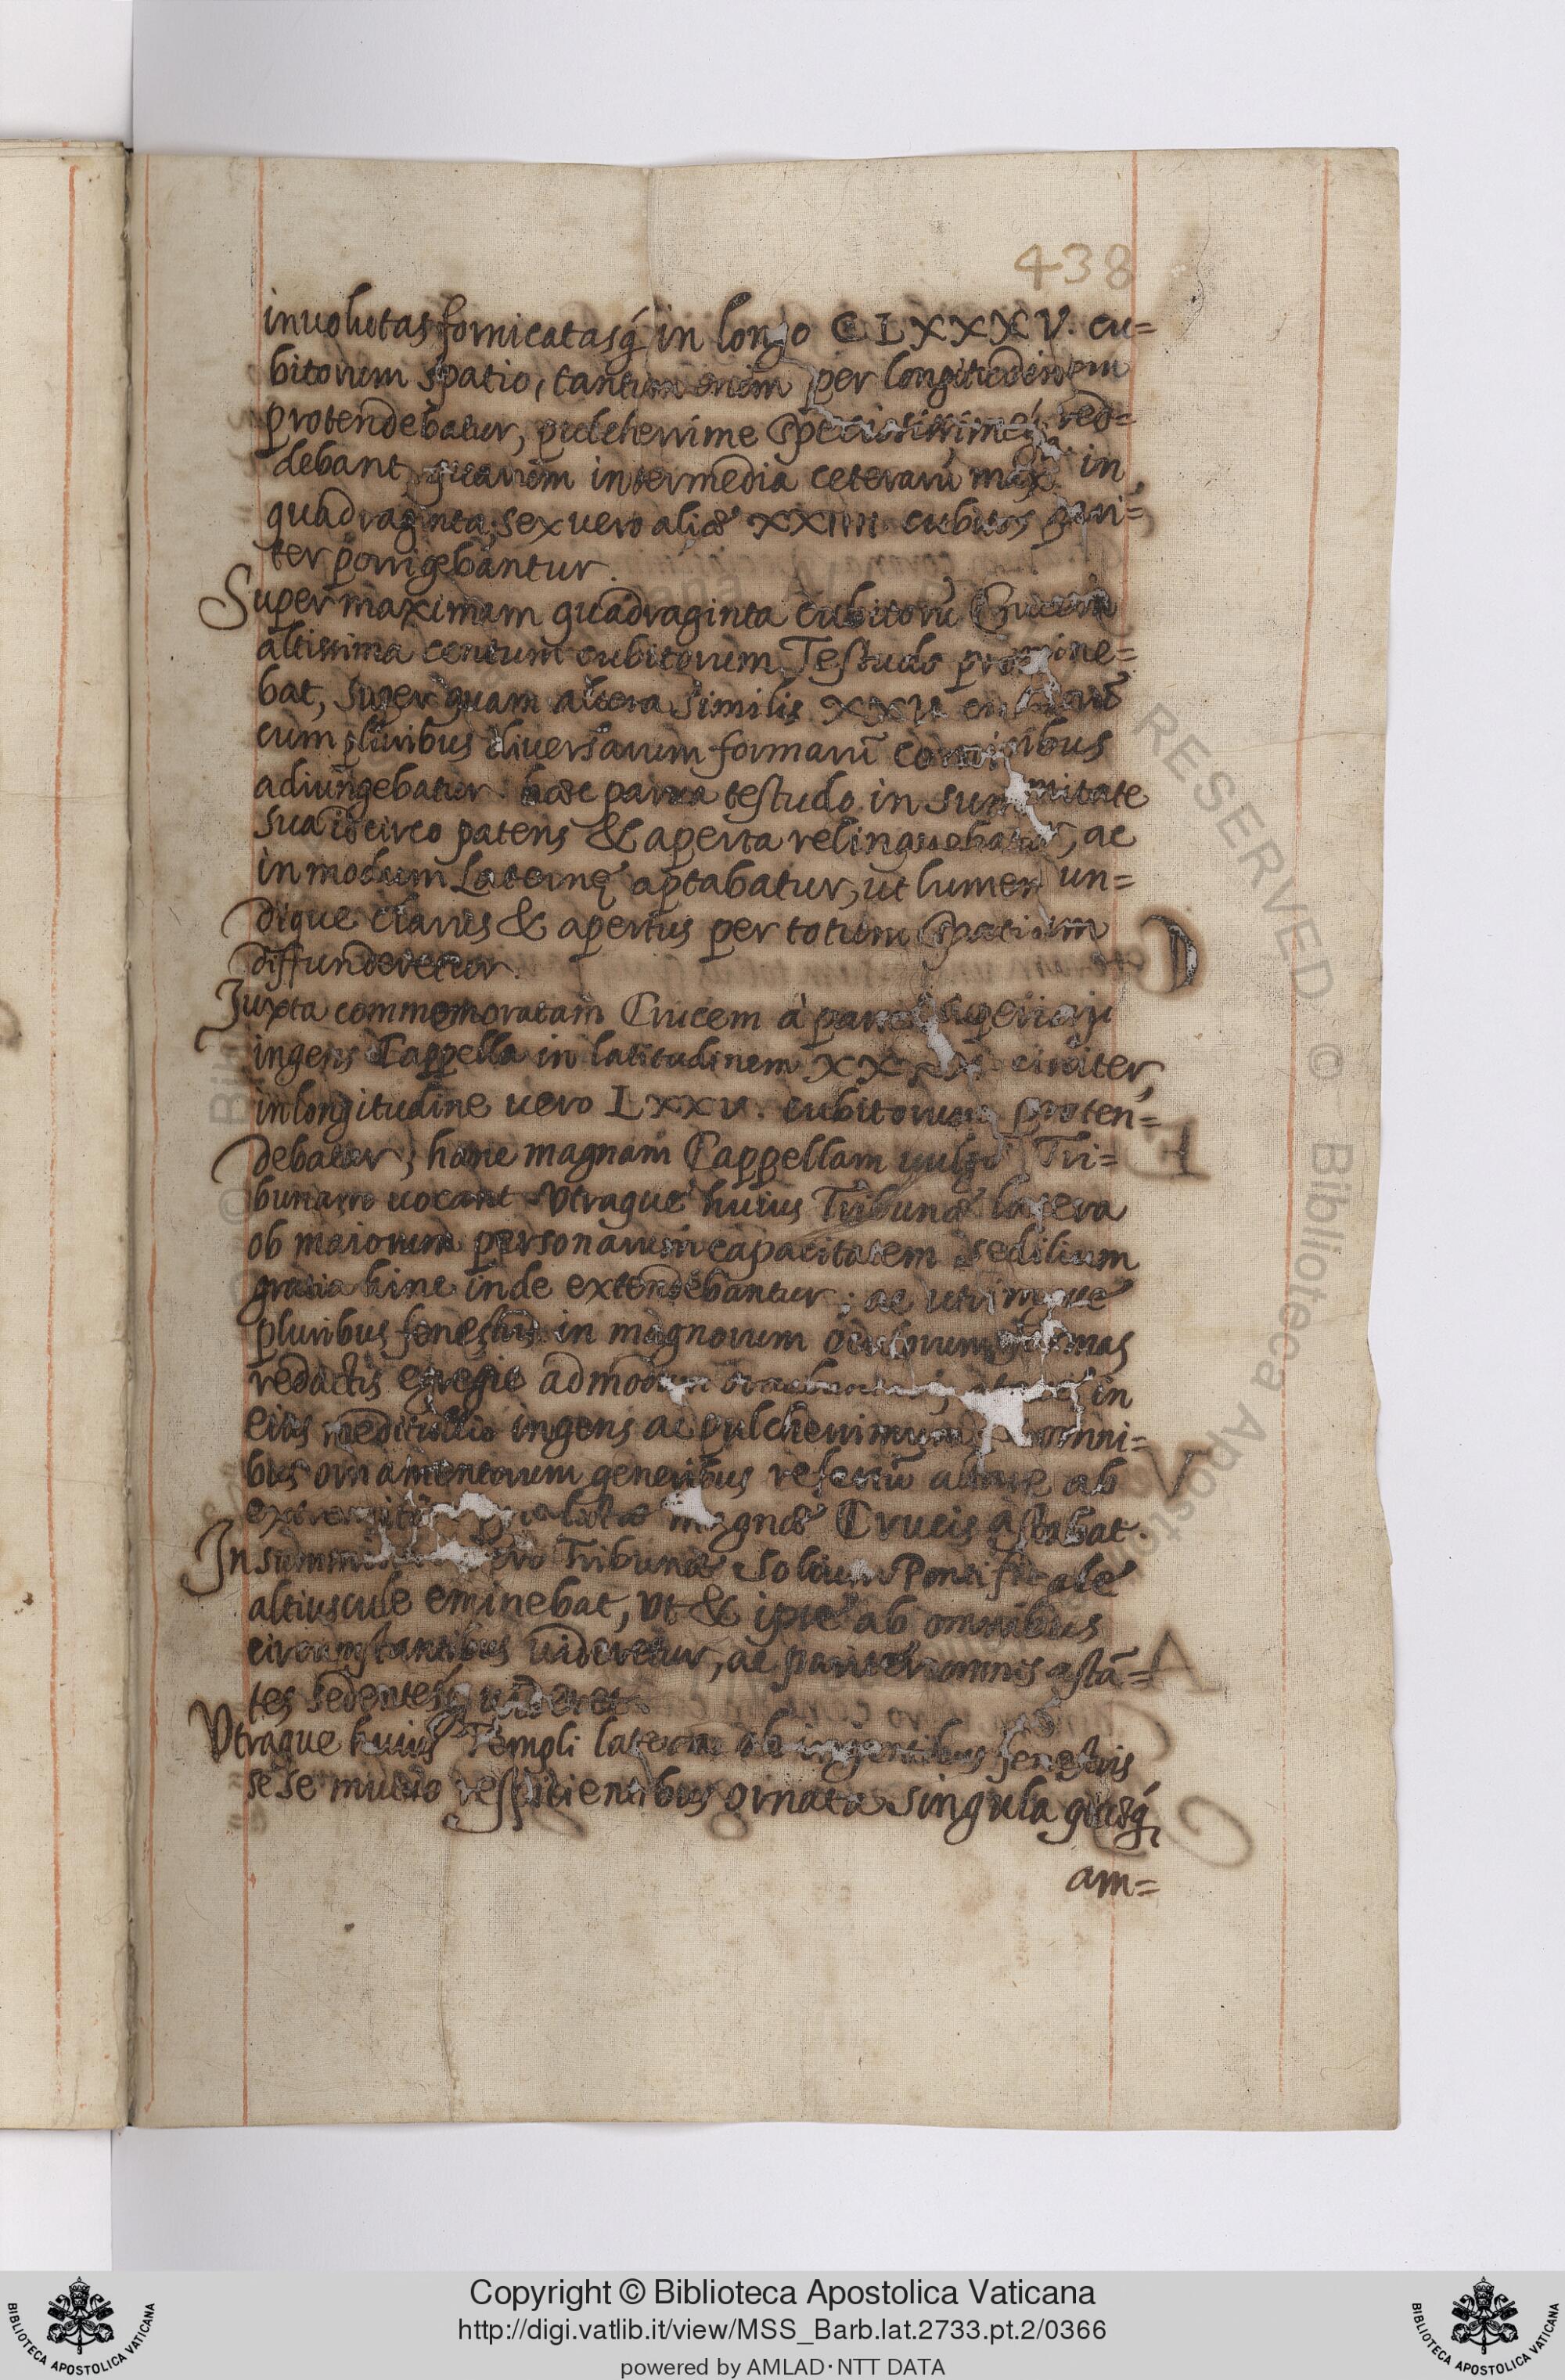 438
inuolutas fornicatasq́ in longo CLXXXV. cu=
bitorum spatio, tantum enim per longitudinem
protendebatur, pulcherrime speciosissimeq́ red=
debant, quarum intermedia ceterarū max in
quadraginta, sex uero aliæ XXIIII cubitos pari=
ter porrigebantur.
Super maximam quadraginta cubitorū Crucem
altissima centum cubitorum Testudo promine=
bat, super quam altera similis XXV
cum pluribus diuersarum formarū coronibus
adiungebatur. hæc parua testudo in summitate
sua idcirco patens & aperta relinquebatur, ac
in modum Laternę aptabatur, ut lumen un=
dique clarius & apertius per totum spatium
diffunderetur.
Iuxta commemoratam Crucem à parte superiori
ingens Cappella in latitudinem circiter,
in longitudine uero LXXV. cubitorum proten=
debatur, hanc magnam Cappellam uulgo Tri=
bunam uocant. Vtraque huius Tribunæ latera
ob maiorum personarum capacitatem sedilium
gratia hinc inde extendebantur; ac utrinque
pluribus fenestris in magnorum oculorum formas
redactis egregie admodum in
eius meditullio ingens ac pulcherrimum omni=
bus ornamentorum generibus refertū altare ab
magnæ Crucis astabat.
In Tribunæ Solium Pontificale
altiuscule eminebat, Vt & ipse ab omnibus
circumstantibus uideretur, ac pariter omnis astā=
tes sedentesq́ uideret.
Vtraque huius Templi latera ab ingentibus fenestris
se se mutuo respicientibus ornata singula quæq́
am=
RESERVED © Biblioteca Apostolica
Copyright © Biblioteca Apostolica Vaticana
http://digi.vatlib.it/view/MSS_Barb.lat.2733.pt.2/0366
powered by AMLAD·NTT DATA
BIBLIOTECA APOSTOLICA VATICANA
BIBLIOTECA APOSTOLICA VATICANA